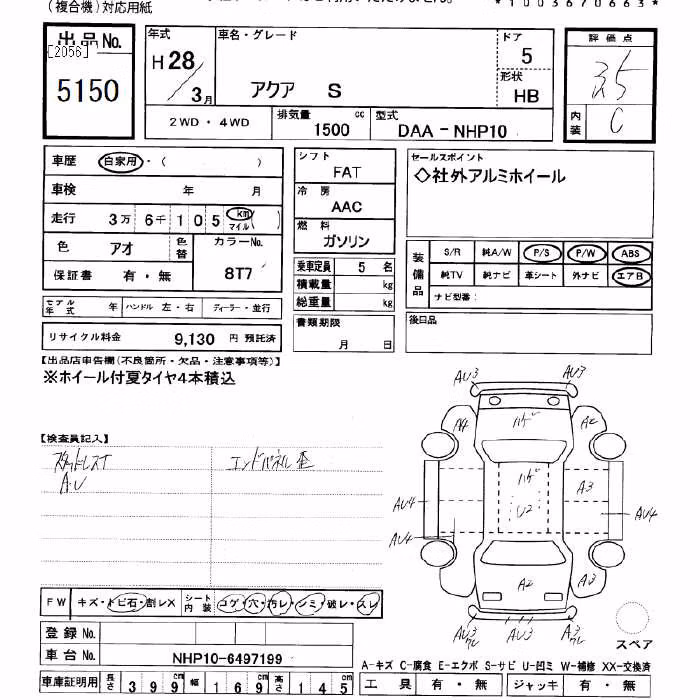 (複合機)対応用紙
*1003670663*
出品No.
[2056]
5150
年式
H28/3月
車名・グレード
アクア S
ドア
5
形状
HB
2WD・4WD
排気量 cc
1500
型式
DAA-NHP10
評価点
3.5
内装
C
車歴 自家用・( )
車検 年 月
走行 3万6千105 km マイル ( )
色 アオ 色替
カラーNo.
8T7
保証書 有・無
モデル年式 年 ハンドル 左・右 ディーラー・並行
リサイクル料金 9,130 円 預託済
シフト
FAT
冷房
AAC
燃料
ガソリン
乗車定員 5 名
積載量 kg
総重量 kg
書類期限
月 日
セールスポイント
◇社外アルミホイール
装備品
S/R 純A/W P/S P/W ABS
純TV 純ナビ 革シート 外ナビ エアB
ナビ型番:
後日品
【出品店申告欄(不良箇所・欠品・注意事項等)】
※ホイール付夏タイヤ4本積込
【検査員記入】
スタッドレスT
A・U
エンドパネル歪
AU3
AU3
A4
ハゲ
A2
ハゲ
A3
U2
AU4
AU4
AU4
A2
A3
AU3
ワレ
AU3
A3
ワレ
スペア
FW キズ・トビ石・割レX シート内装 コゲ・穴・汚レ・シミ・破レ・スレ
登録No.
車台No. NHP10-6497199
車庫証明用 長さ 399 幅 169 高さ 145 cm
A-キズ C-腐食 E-エクボ S-サビ U-凹ミ W-補修 XX-交換済
工具 有・無 ジャッキ 有・無